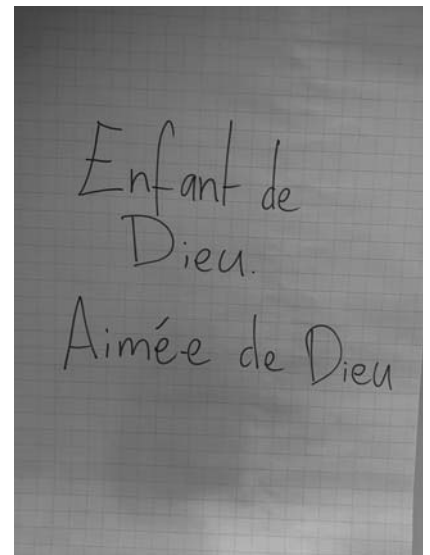 Enfant de
Dieu.
Aimée de Dieu